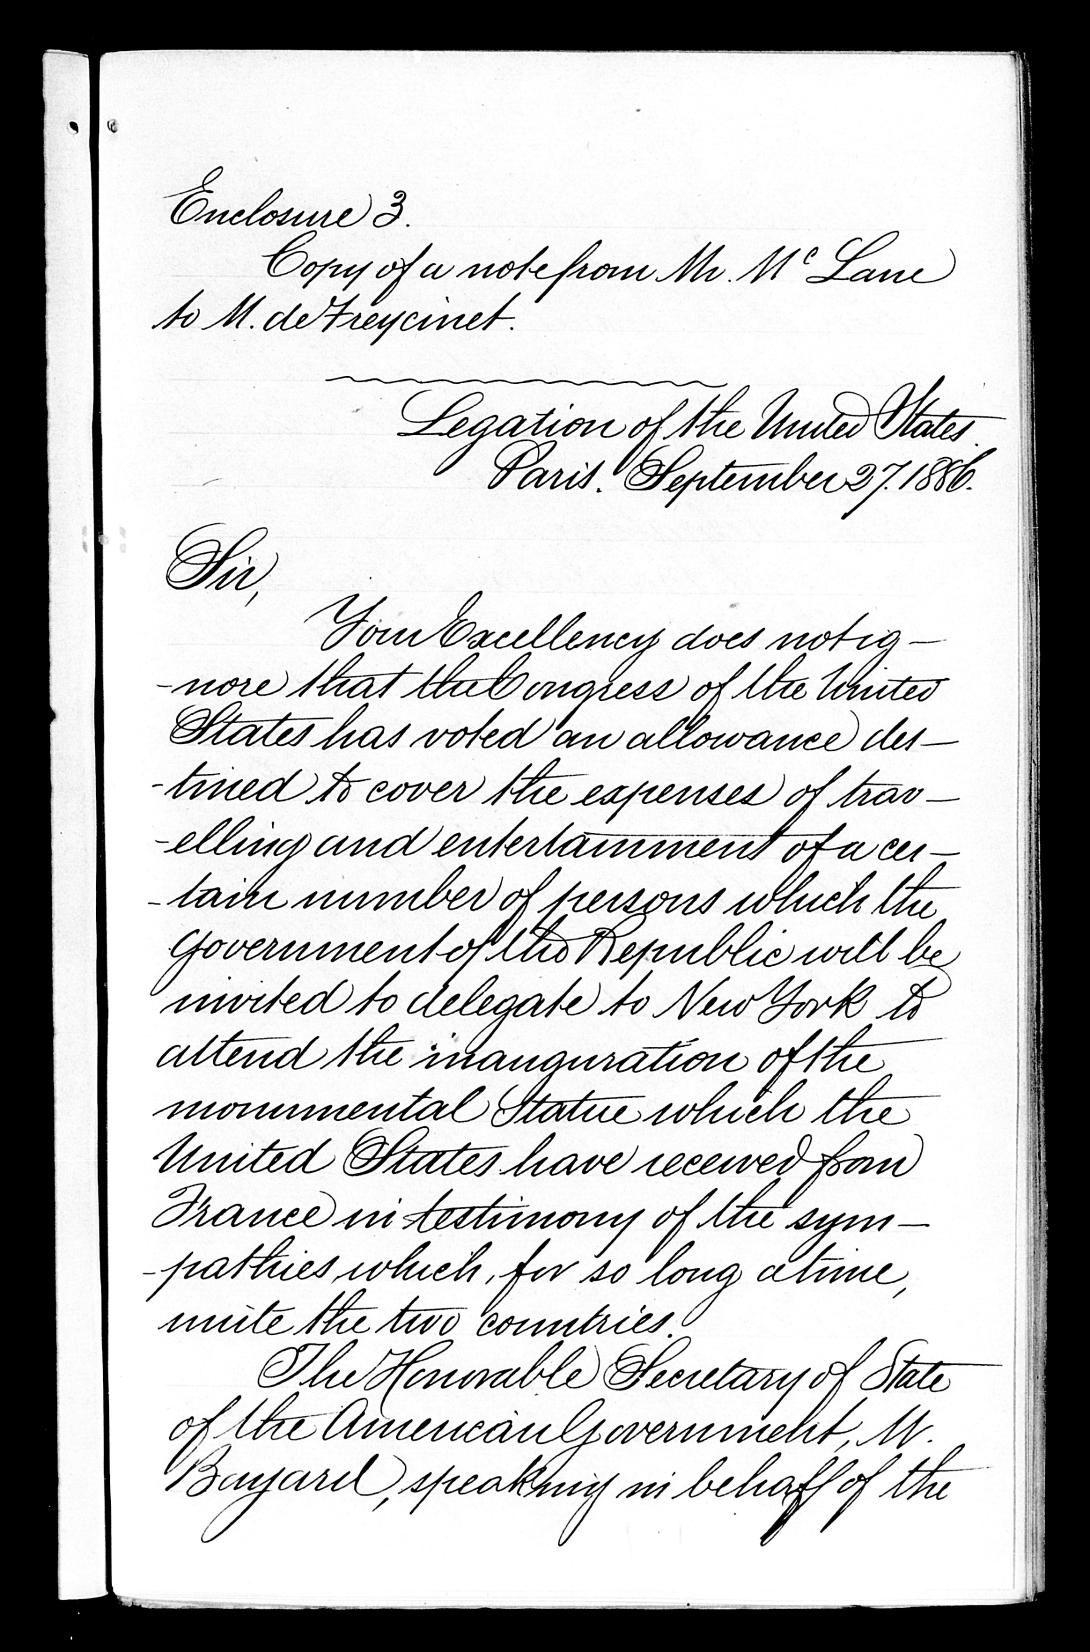 Enclosure 3.
Copy of a note from Mr. McLane
to M. de Freycinet.
Legation of the United States.
Paris. September 27. 1886.
Sir,
Your Excellency does not ig-
-nore that the Congress of the United
States has voted an allowance des-
-tined to cover the expenses of trav-
-elling and entertainment of a cer-
-tain number of persons which the
Government of the Republic will be
invited to delegate to New York to
attend the inauguration of the
monumental Statue which the
United States have received from
France in testimony of the sym-
-pathies which, for so long a time,
unite the two countries.
The Honorable Secretary of State
of the American Government, M.
Bayard, speaking in behalf of the